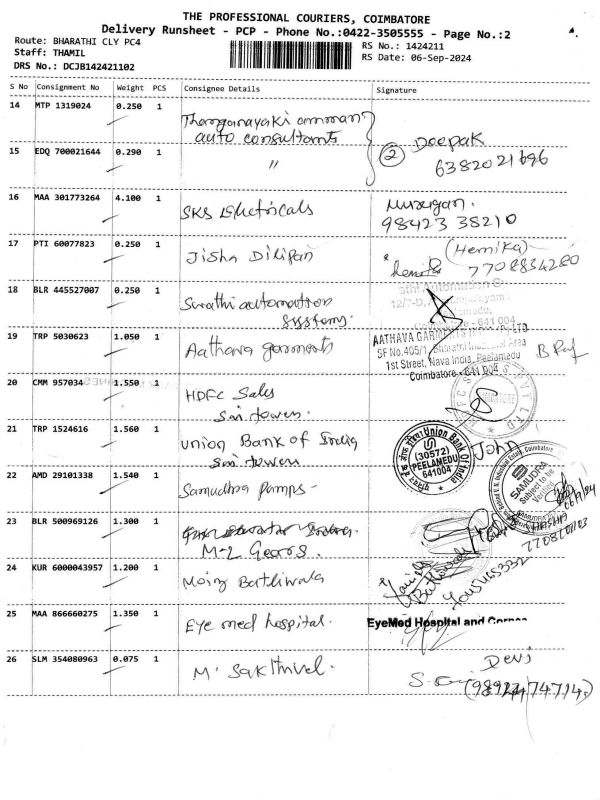 THE PROFESSIONAL COURIERS, COIMBATORE
Delivery Runsheet - PCP - Phone No.:0422-3505555 - Page No.:2
Route: BHARATHI CLY PC4
RS No.: 1424211
Staff: THAMIL
RS Date: 06-Sep-2024
DRS No.: DCJB142421102
S No Consignment No Weight PCS Consignee Details Signature
14 MTP 1319024 0.250 1 Thanganayaki amman
auto consultants
② Deepak
6382021696
15 EDQ 700021644 0.290 1 "
16 MAA 301773264 4.100 1 SKS Electricals
Murugan.
98423 38210
17 PTI 60077823 0.250 1 Jisha Dilipan
(Hemika)
7708834280
18 BLR 445527007 0.250 1 Surathi automation
systems.
Automation
641 004
19 TRP 5030623 1.050 1 Aathava garments
AATHAVA GARMENTS LTD
SF No.405/1, Bharathi Area
1st Street, Nava India, Peelamedu
Coimbatore - 641 004
20 CMM 957034 1.550 1 HDFC Sales
Sri towers.
21 TRP 1524616 1.560 1 Union Bank of India
Sri towers
Union Bank Of India
(30572)
PEELAMEDU
641004
John
22 AMD 29101338 1.540 1 Samudhra pumps-
Coimbatore
SAMUDRA
Subject to be
Verified
23 BLR 500969126 1.300 1
M-L Gears.
24 KUR 6000043957 1.200 1 Moiz Batliwala
25 MAA 866660275 1.350 1 Eye med hospital.
EyeMed Hospital and
26 SLM 354080963 0.075 1 M. Sakthivel.
Devi